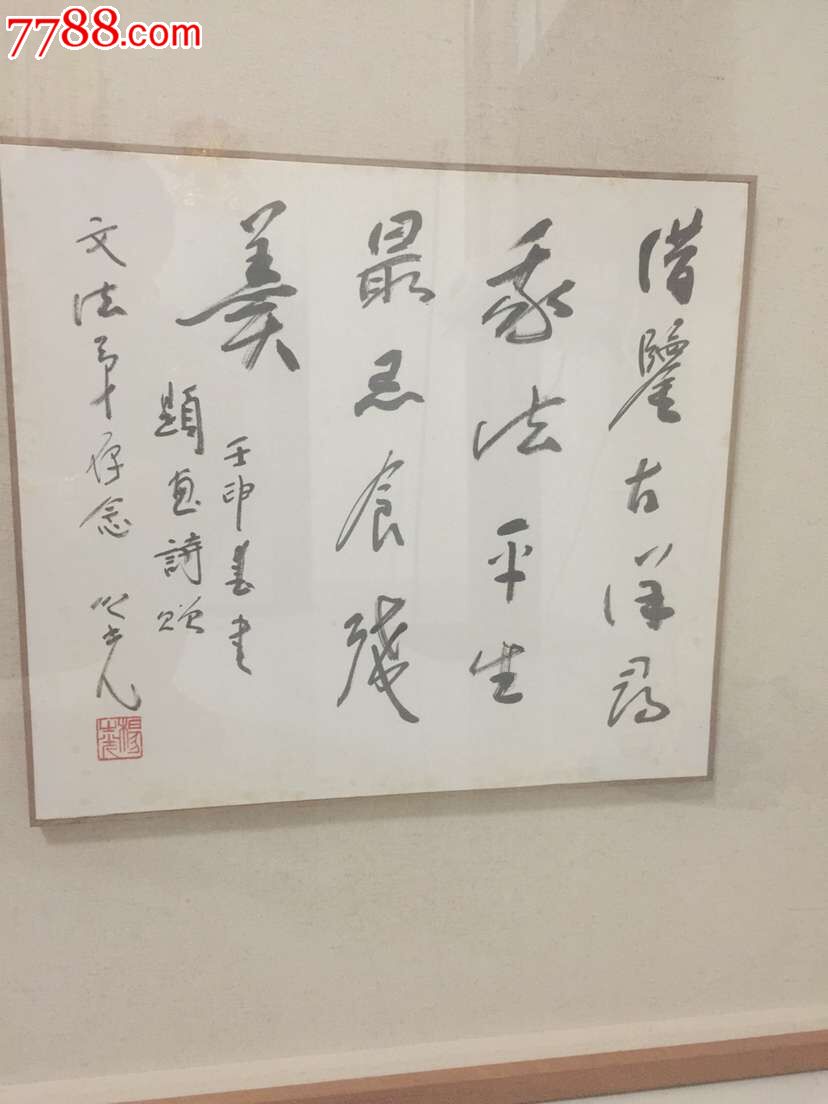 7788.com
借鑒古洋尋
我法平生
最忌食殘
羹
壬申春書
題畫詩贈
文法弟存念